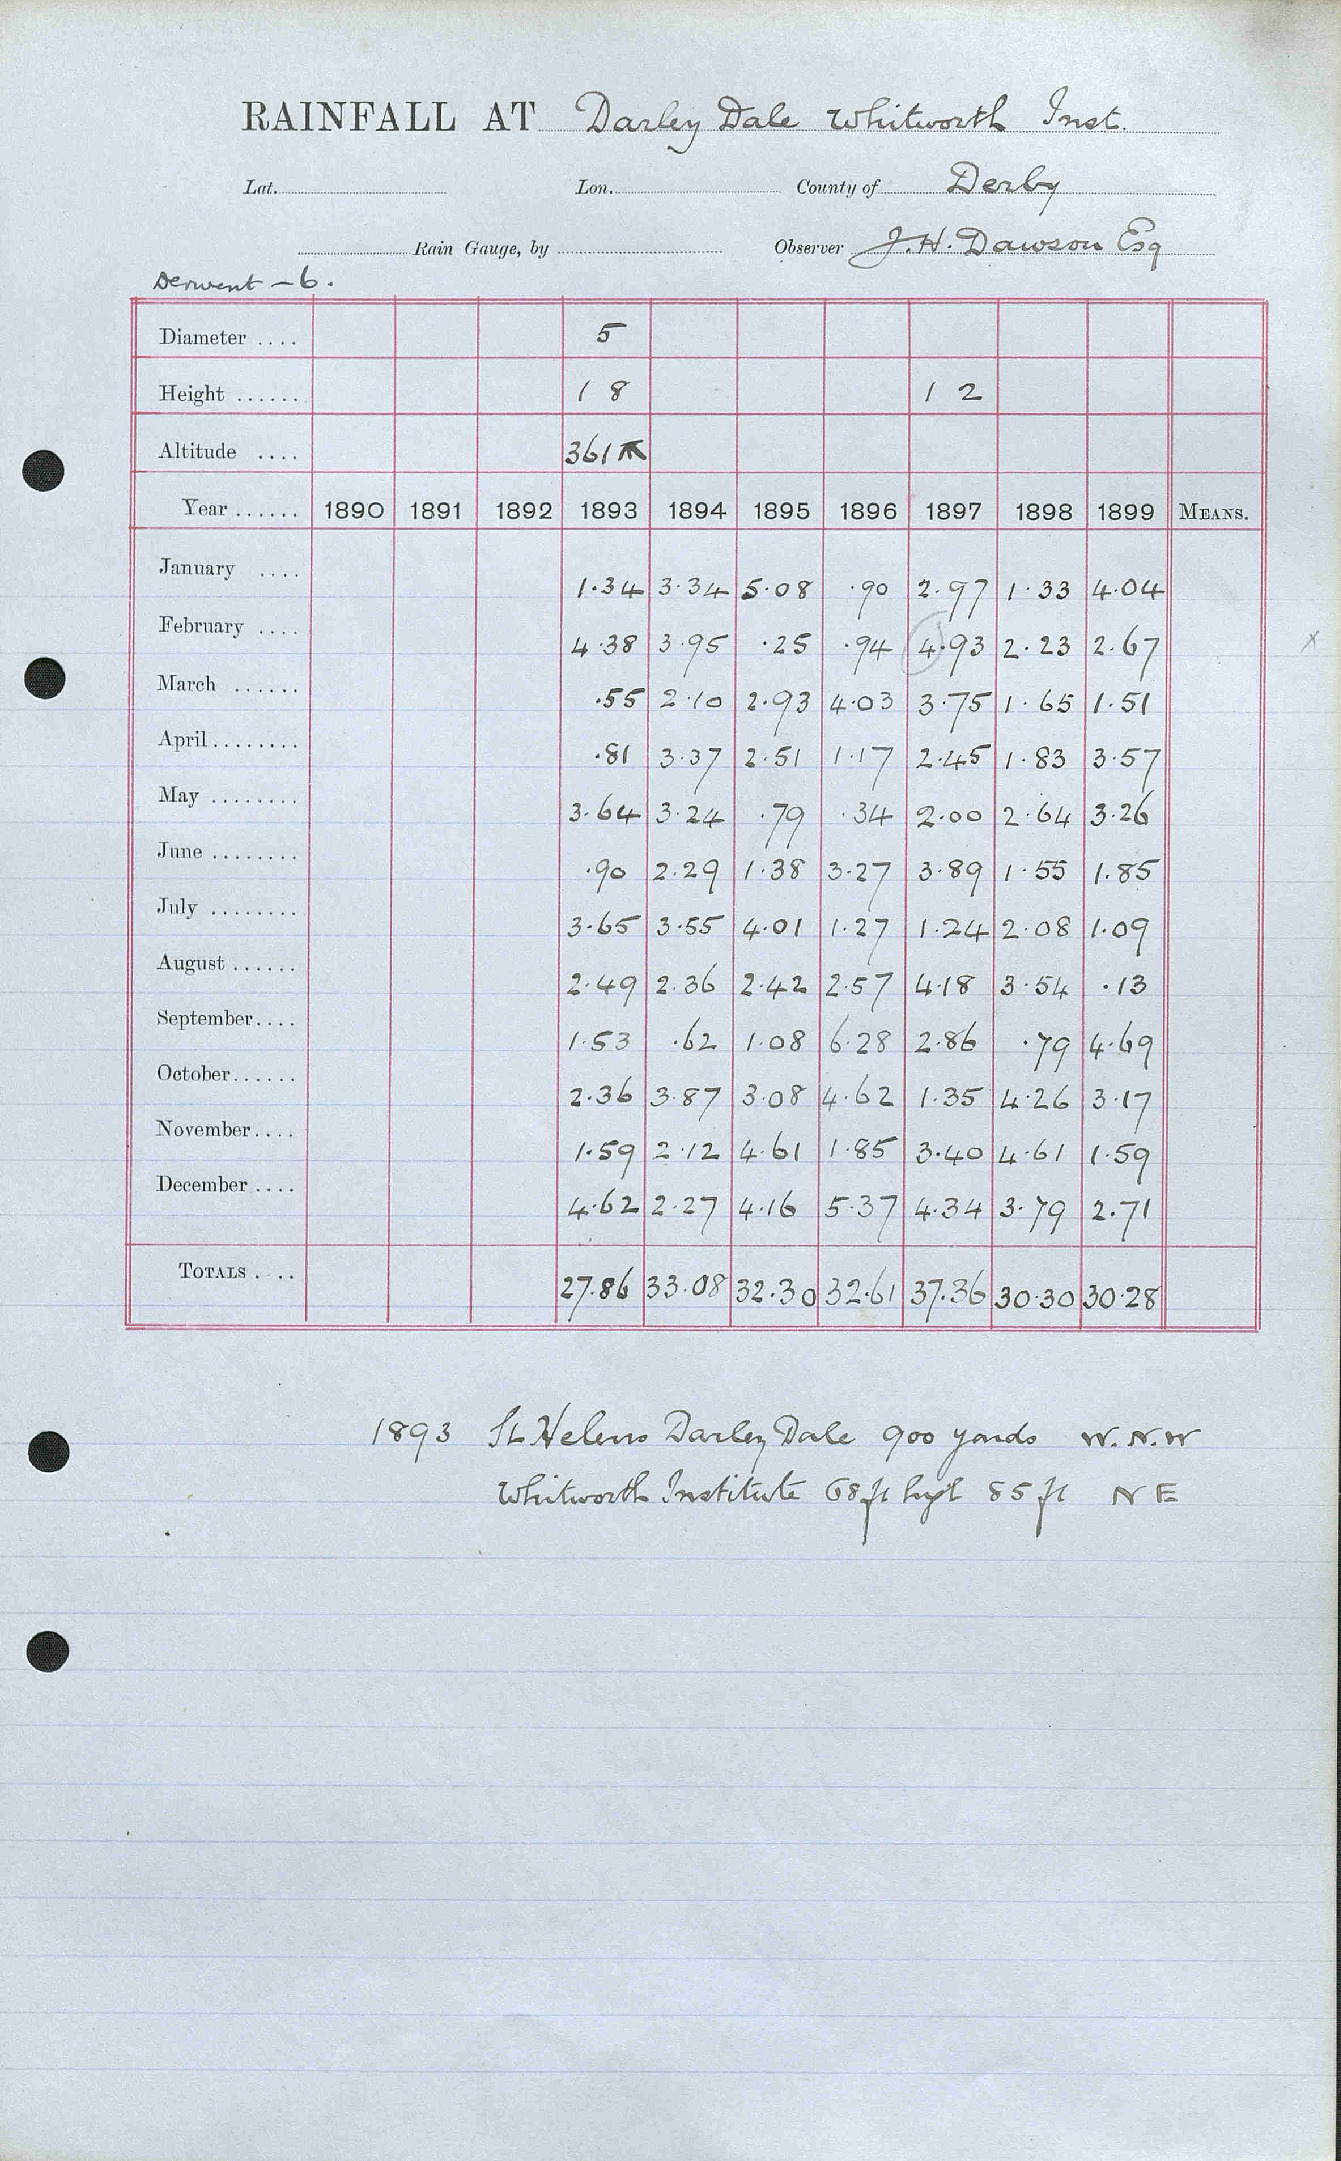 RAINFALL AT Darley Dale Whitworth Inst.
Lat. Lon. County of Derby
Rain Gauge, by Observer J. H. Dawson Esq
Derwent - 6.
Diameter .... 5
Height ...... 1 8 1 2
Altitude .... 361
Year ...... 1890 1891 1892 1893 1894 1895 1896 1897 1898 1899 MEANS.
January .... 1.34 3.34 5.08 .90 2.97 1.33 4.04
February .... 4.38 3.95 .25 .94 4.93 2.23 2.67 x
March ...... .55 2.10 2.93 4.03 3.75 1.65 1.51
April ........ .81 3.37 2.51 1.17 2.45 1.83 3.57
May ........ 3.64 3.24 .79 .34 2.00 2.64 3.26
June ........ .90 2.29 1.38 3.27 3.89 1.55 1.85
July ........ 3.65 3.55 4.01 1.27 1.24 2.08 1.09
August ...... 2.49 2.36 2.42 2.57 4.18 3.54 .13
September.... 1.53 .62 1.08 6.28 2.86 .79 4.69
October...... 2.36 3.87 3.08 4.62 1.35 4.26 3.17
November.... 1.59 2.12 4.61 1.85 3.40 4.61 1.59
December .... 4.62 2.27 4.16 5.37 4.34 3.79 2.71
TOTALS .... 27.86 33.08 32.30 32.61 37.36 30.30 30.28
1893 St Helens Darley Dale 900 yards W.N.W
Whitworth Institute 68 ft 85 ft NE